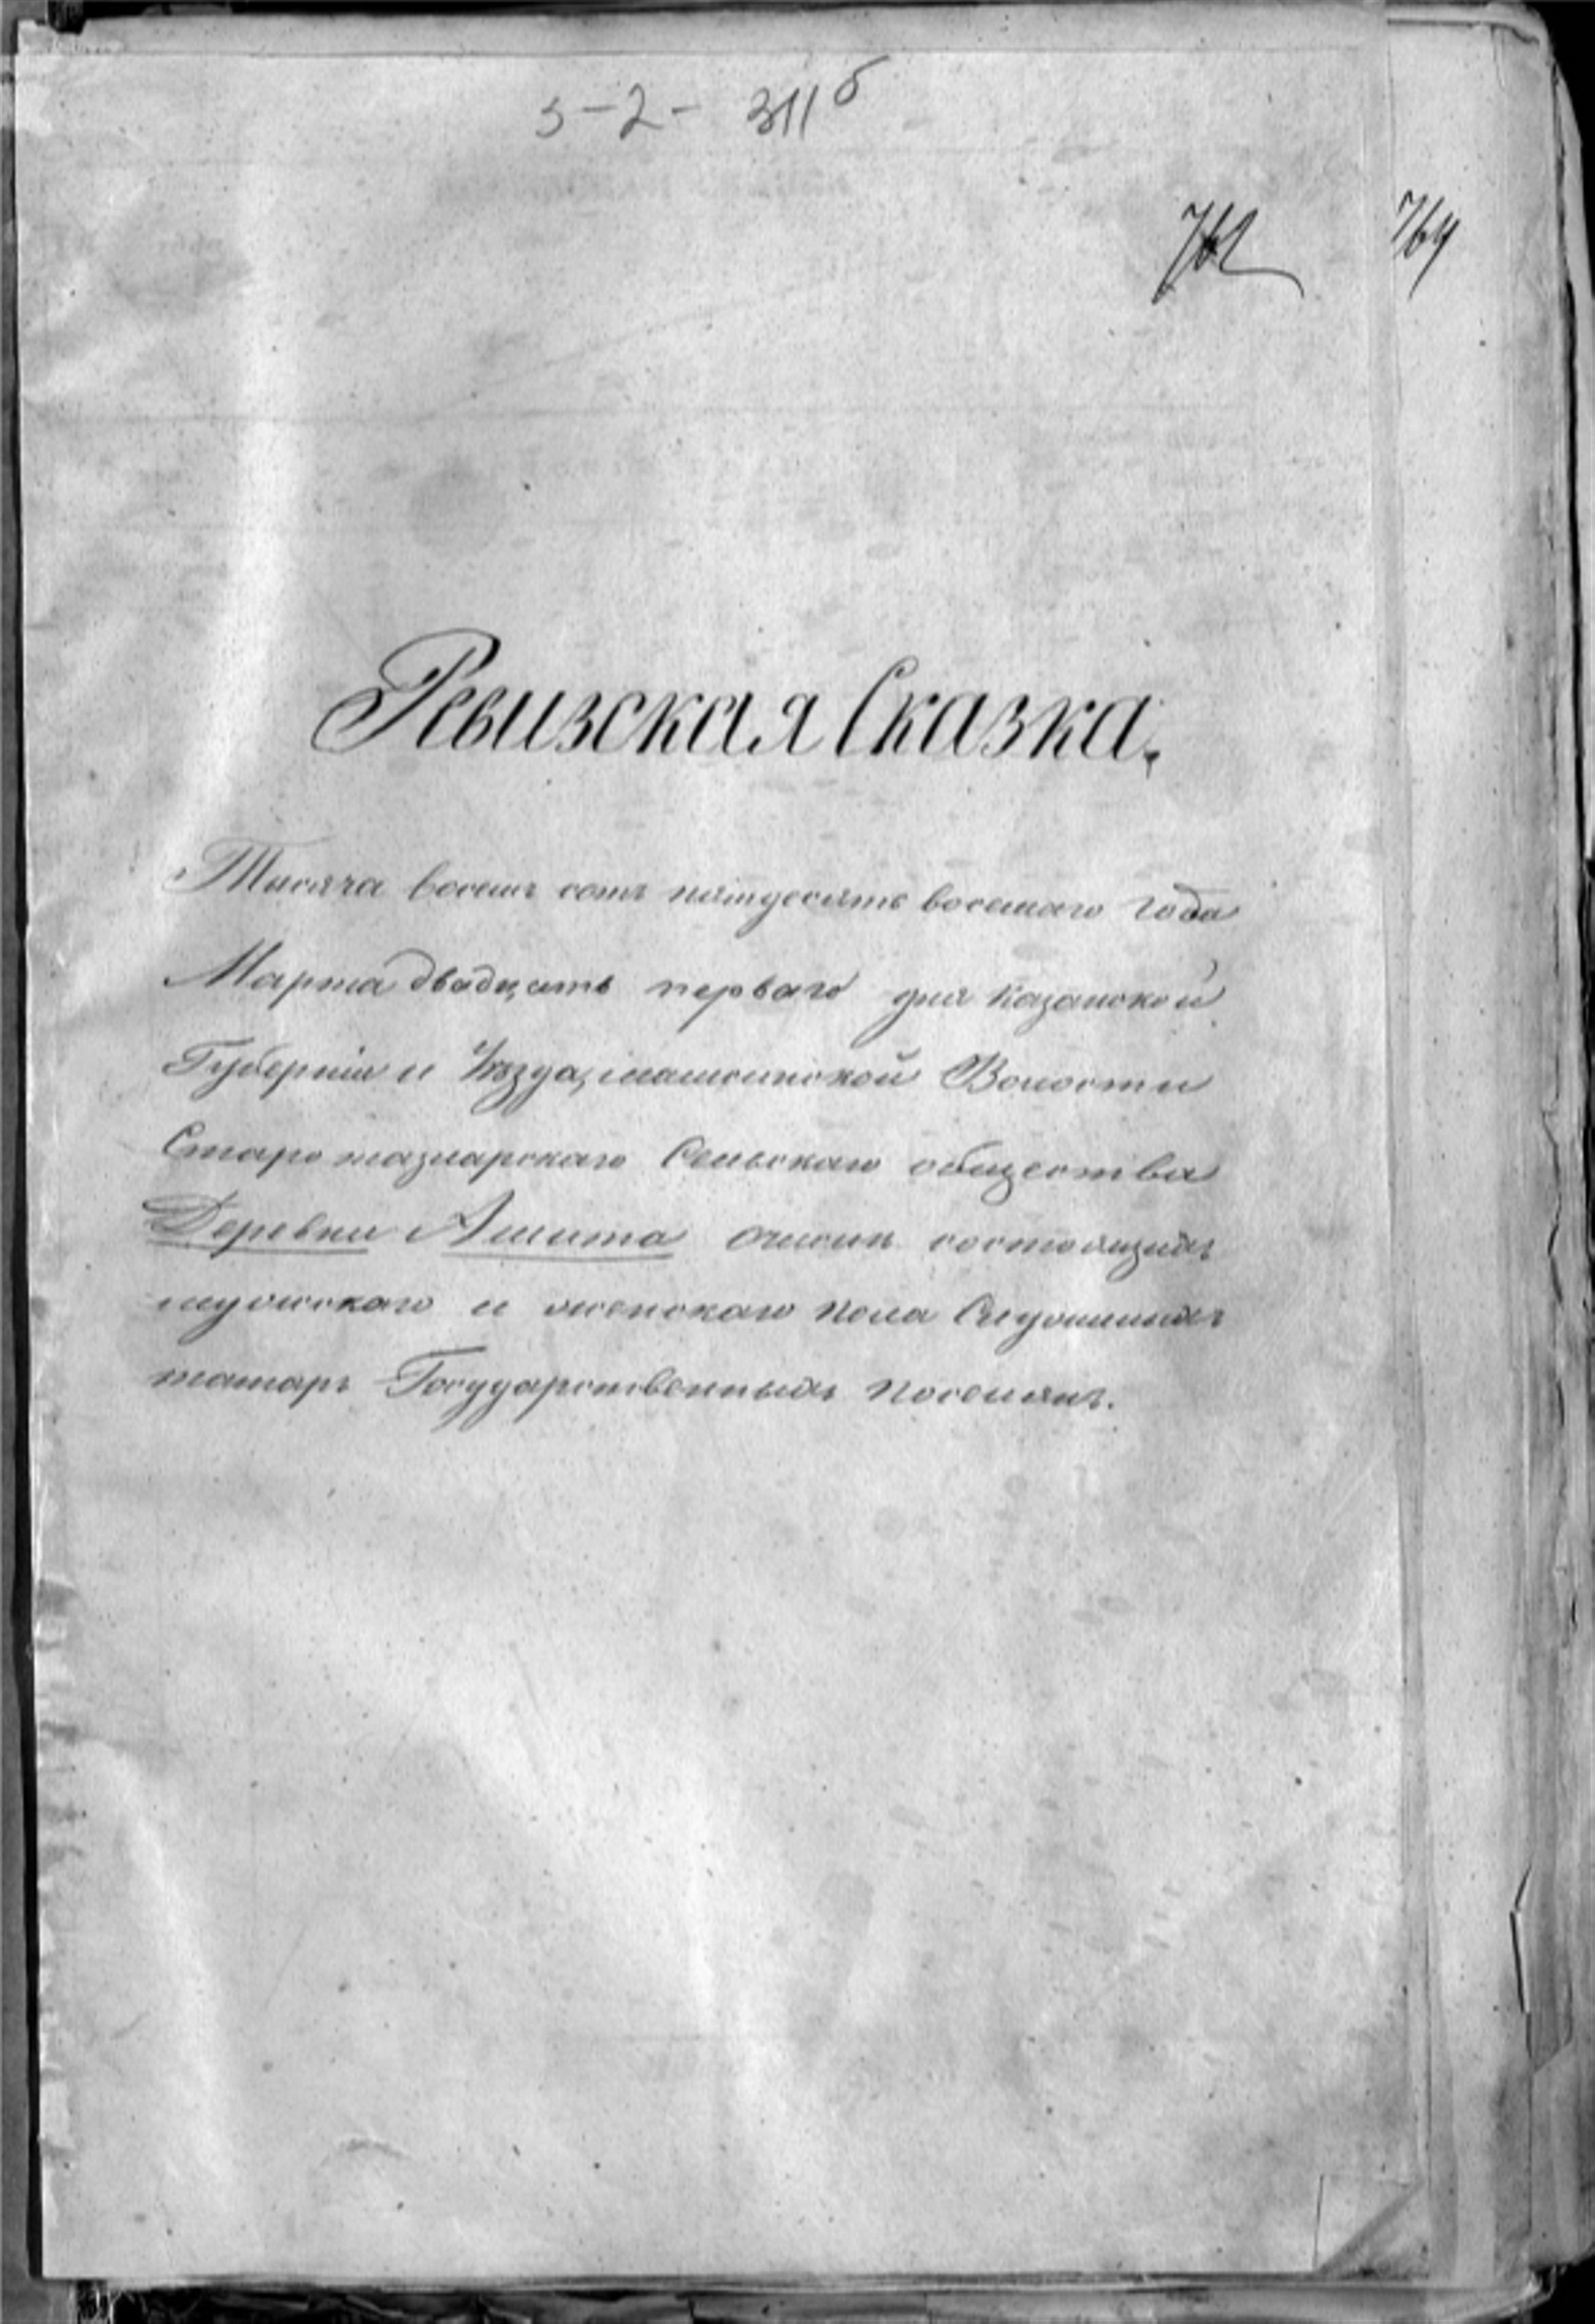 3-2- 311б
764
Ревизская Сказка.
Тысяча восемь сотъ пятьдесятъ восьмаго года
Марта двадцать перваго дня Казанской
Губерніи и Уѣзда, Волости
Старо Сельскаго общества
Деревни Ашита состоящихъ
мужскаго и женскаго пола
татаръ Государственныхъ поселянъ.